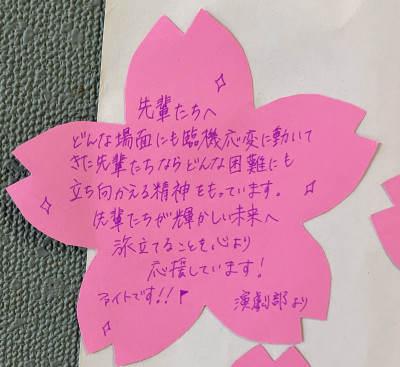 先輩たちへ
どんな場面にも臨機応変に動いて
きた先輩たちならどんな困難にも
立ち向かえる精神をもっています。
先輩たちが輝かしい未来へ
旅立てることを心より
応援しています!
ファイトです!!
演劇部より